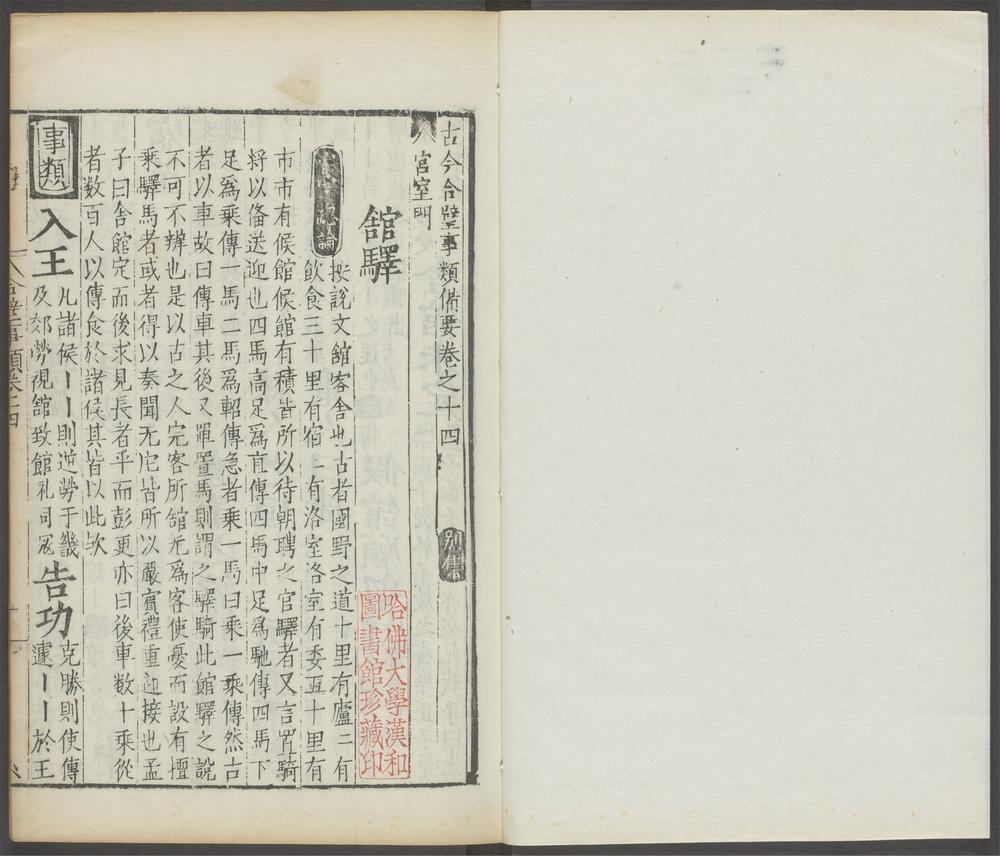 古今合璧事類備要卷之十四 別集
宮室門
舘驛
論
按說文舘客舍也古者國野之道十里有廬二有
飲食三十里有宿二有洛室洛室有委五十里有
市市有候館候館有積皆所以待朝聘之官驛者又言置騎
将以俻送迎也四馬高足爲直傳四馬中足爲馳傳四馬下
足爲乘傳一馬二馬爲軺傳急者乘一馬曰乘一乘傳然古
者以車故曰傳車其後又單置馬則謂之驛騎此館驛之說
不可不辨也是以古之人完客所舘无爲客使憂而設有擅
乘驛馬者或者得以奏聞无它皆所以嚴賓禮重迎接也孟
子曰舎館定而後求見長者乎而彭更亦曰後車数十乘從
者数百人以傳食於諸侯其皆以此欤
事類
入王
凡諸侯丨丨則逆勞于畿
及郊勞視舘致館礼同
告功
克勝則使傳
遽丨丨於王
哈佛大學漢和
圖書館珍藏印